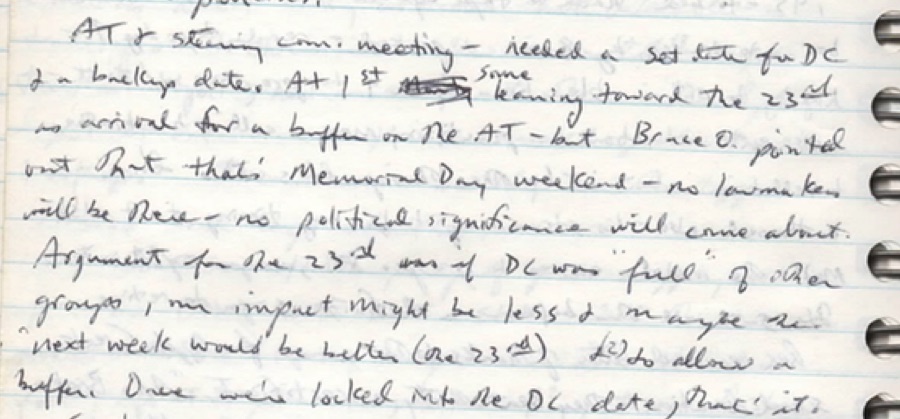 AT & steering com. meeting - needed a set date for DC
& a backup date. At 1st some leaning toward the 23rd
as arrival for a buffer on the AT - but Bruce O. pointed
out that that's Memorial Day weekend - no lawmakers
will be there - no political significance will come about.
Argument for the 23rd was if DC was "full" of other
groups, our impact might be less & maybe the
next week would be better (the 23rd) (2) to allow a
buffer. Once we're locked into the DC date, that's it.